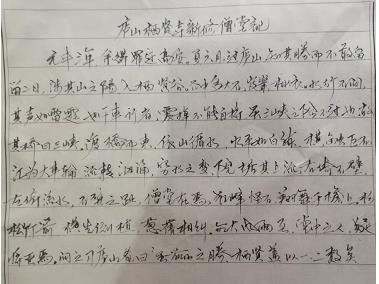 庐山栖贤寺新修僧堂记
元丰三年 余得罪迁高安，夏六月过庐山，知其胜而不敢留
留二日，涉其山之阳，入栖贤谷，谷中多大石，岌嶪相倚，水行石间
其声如雷霆，如千乘车行者，震掉不能自持，虽三峡之险不过也，故
其桥曰三峡，渡桥而东，依山循水，水平如白练，横触巨石
汇为大车轮，流转汹涌，穷水之变，院据其上流，右倚石壁
左俯流水，石壁之趾，僧堂在焉，狂峰怪石，翔舞于檐上，杉
松竹箭，横生倒植，葱蒨相纠，每大风雨至，堂中之人，疑
将压焉，问之习庐山者曰：虽兹山之胜，栖贤盖以一二数矣